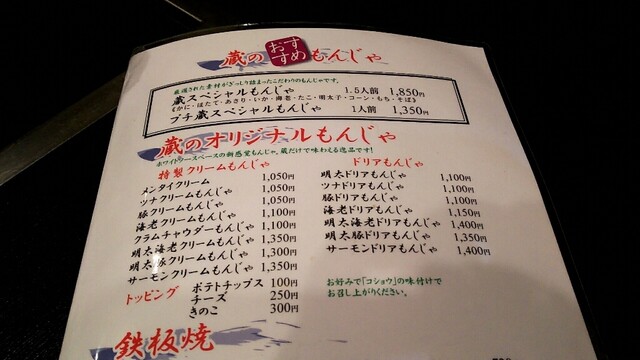 蔵の おすすめ もんじゃ
厳選された素材がぎっしり詰まったこだわりのもんじゃです。
蔵スペシャルもんじゃ 1.5人前 1,850円
《かに・ほたて・あさり・いか・海老・たこ・明太子・コーン・もち・そば》
プチ蔵スペシャルもんじゃ 1人前 1,350円
蔵のオリジナルもんじゃ
ホワイトソースベースの新感覚もんじゃ。蔵だけで味わえる逸品です!
特製クリームもんじゃ
メンタイクリーム 1,050円
ツナクリームもんじゃ 1,050円
豚クリームもんじゃ 1,050円
海老クリームもんじゃ 1,100円
クラムチャウダーもんじゃ 1,100円
明太海老クリームもんじゃ 1,350円
明太豚クリームもんじゃ 1,300円
サーモンクリームもんじゃ 1,350円
トッピング ポテトチップス 100円
チーズ 250円
きのこ 300円
ドリアもんじゃ
明太ドリアもんじゃ 1,100円
ツナドリアもんじゃ 1,100円
豚ドリアもんじゃ 1,100円
海老ドリアもんじゃ 1,150円
明太海老ドリアもんじゃ 1,400円
明太豚ドリアもんじゃ 1,350円
サーモンドリアもんじゃ 1,400円
お好みで「コショウ」の味付けで
お召し上がりください。
鉄板焼